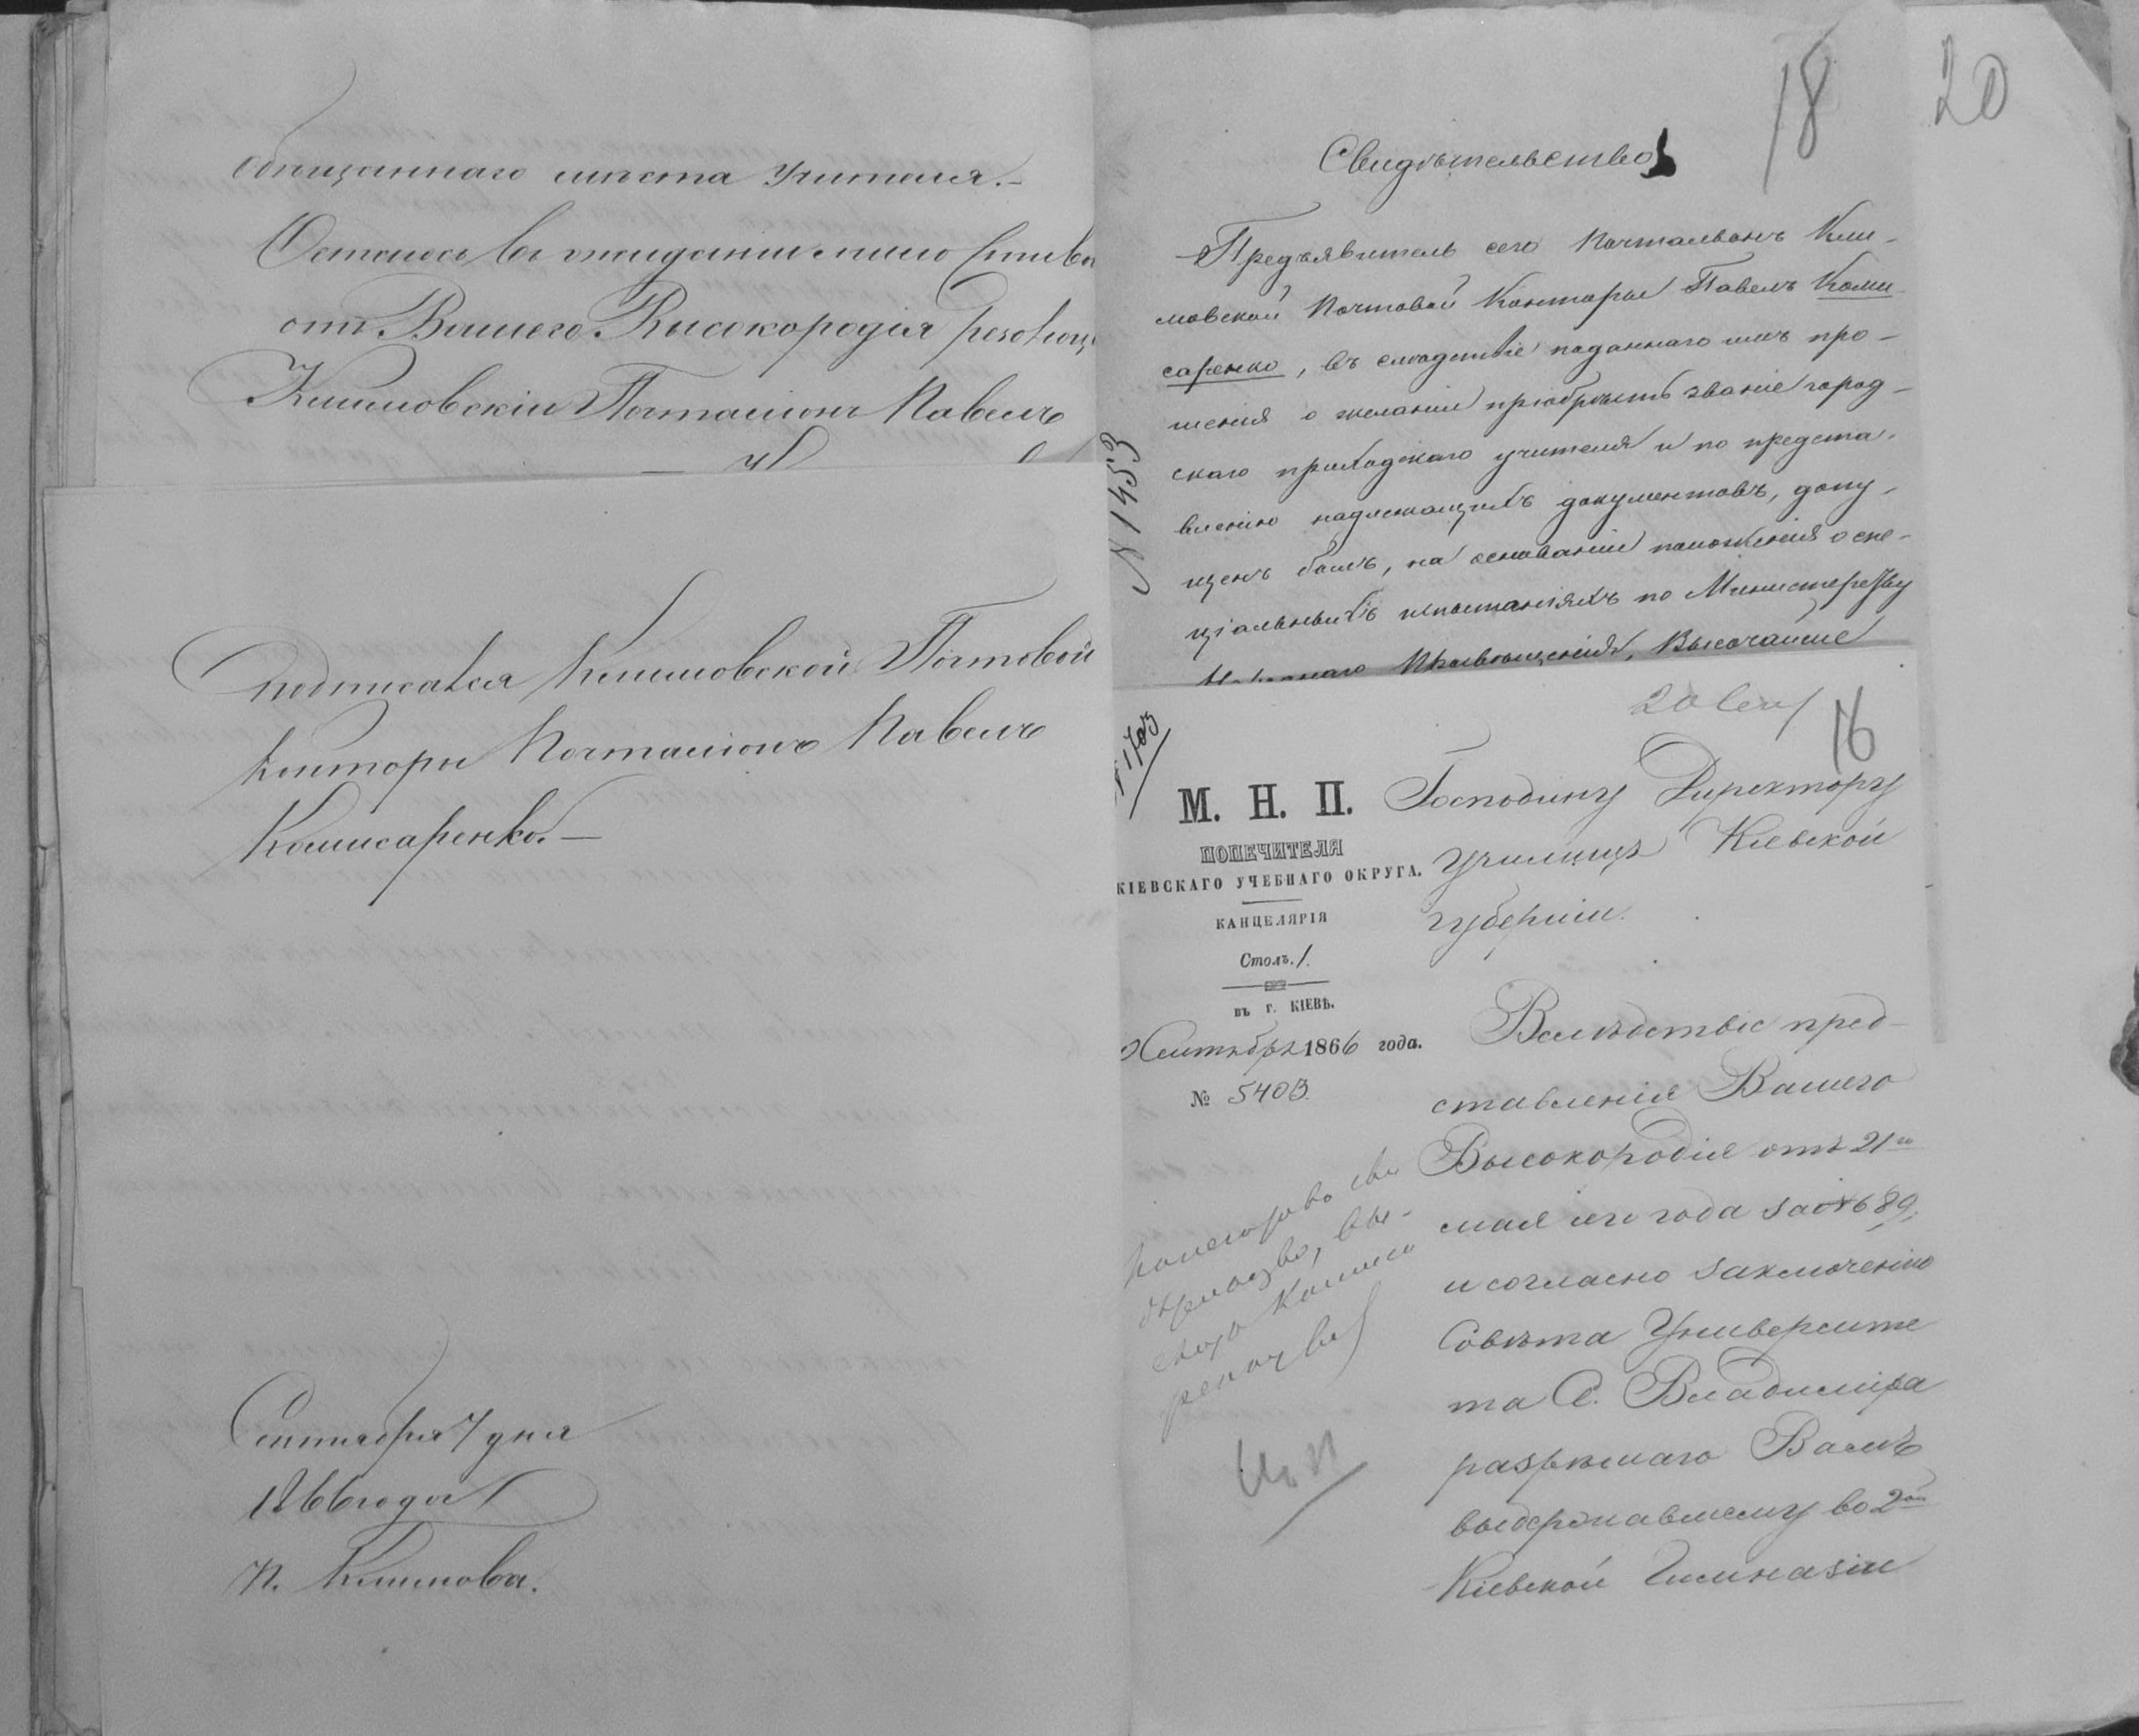 обѣщаннаго мѣста Учителя.—
Остаюсь въ ожиданіи
отъ Вашего Высокородія резолюц
Климовскій Почталіонъ Павелъ
Подписался Климовской Почтовой
Конторы Почталіонъ Павелъ
Комисаренко.—
Сентября 7 дня
1866 года
п. Климова.
18
20
Свидѣтельство
№ 1453
Предъявитель сего Почтальонъ Кли-
мовской Почтовой Конторы Павелъ Коми
саренко, въ слѣдствіе поданнаго имъ про-
шенія о желаніи пріобрѣсть званіе город-
скаго приходскаго учителя и по предста-
вленію надлежащихъ документовъ, допу-
щенъ былъ, на основаніи положенія о спе-
ціальныхъ испытаніяхъ по Министерству
Народнаго Просвѣщенія, Высочайше
20 Сен
16
№ 1703
М. Н. П.
ПОПЕЧИТЕЛЯ
КІЕВСКАГО УЧЕБНАГО ОКРУГА.
КАНЦЕЛЯРІЯ
Столъ. 1.
въ г. КІЕВѢ.
Сентября 1866 года.
№ 5403.
Господину Директору
Училищъ Кіевской
губерніи.
Вслѣдствіе пред-
ставленія Вашего
Высокородія отъ 21го
мая сего года за № 689,
и согласно заключенію
Совѣта Университе
та Св. Владиміра
разрѣшаю Вамъ
выдержавшему во 2ой
Кіевской Гимназіи